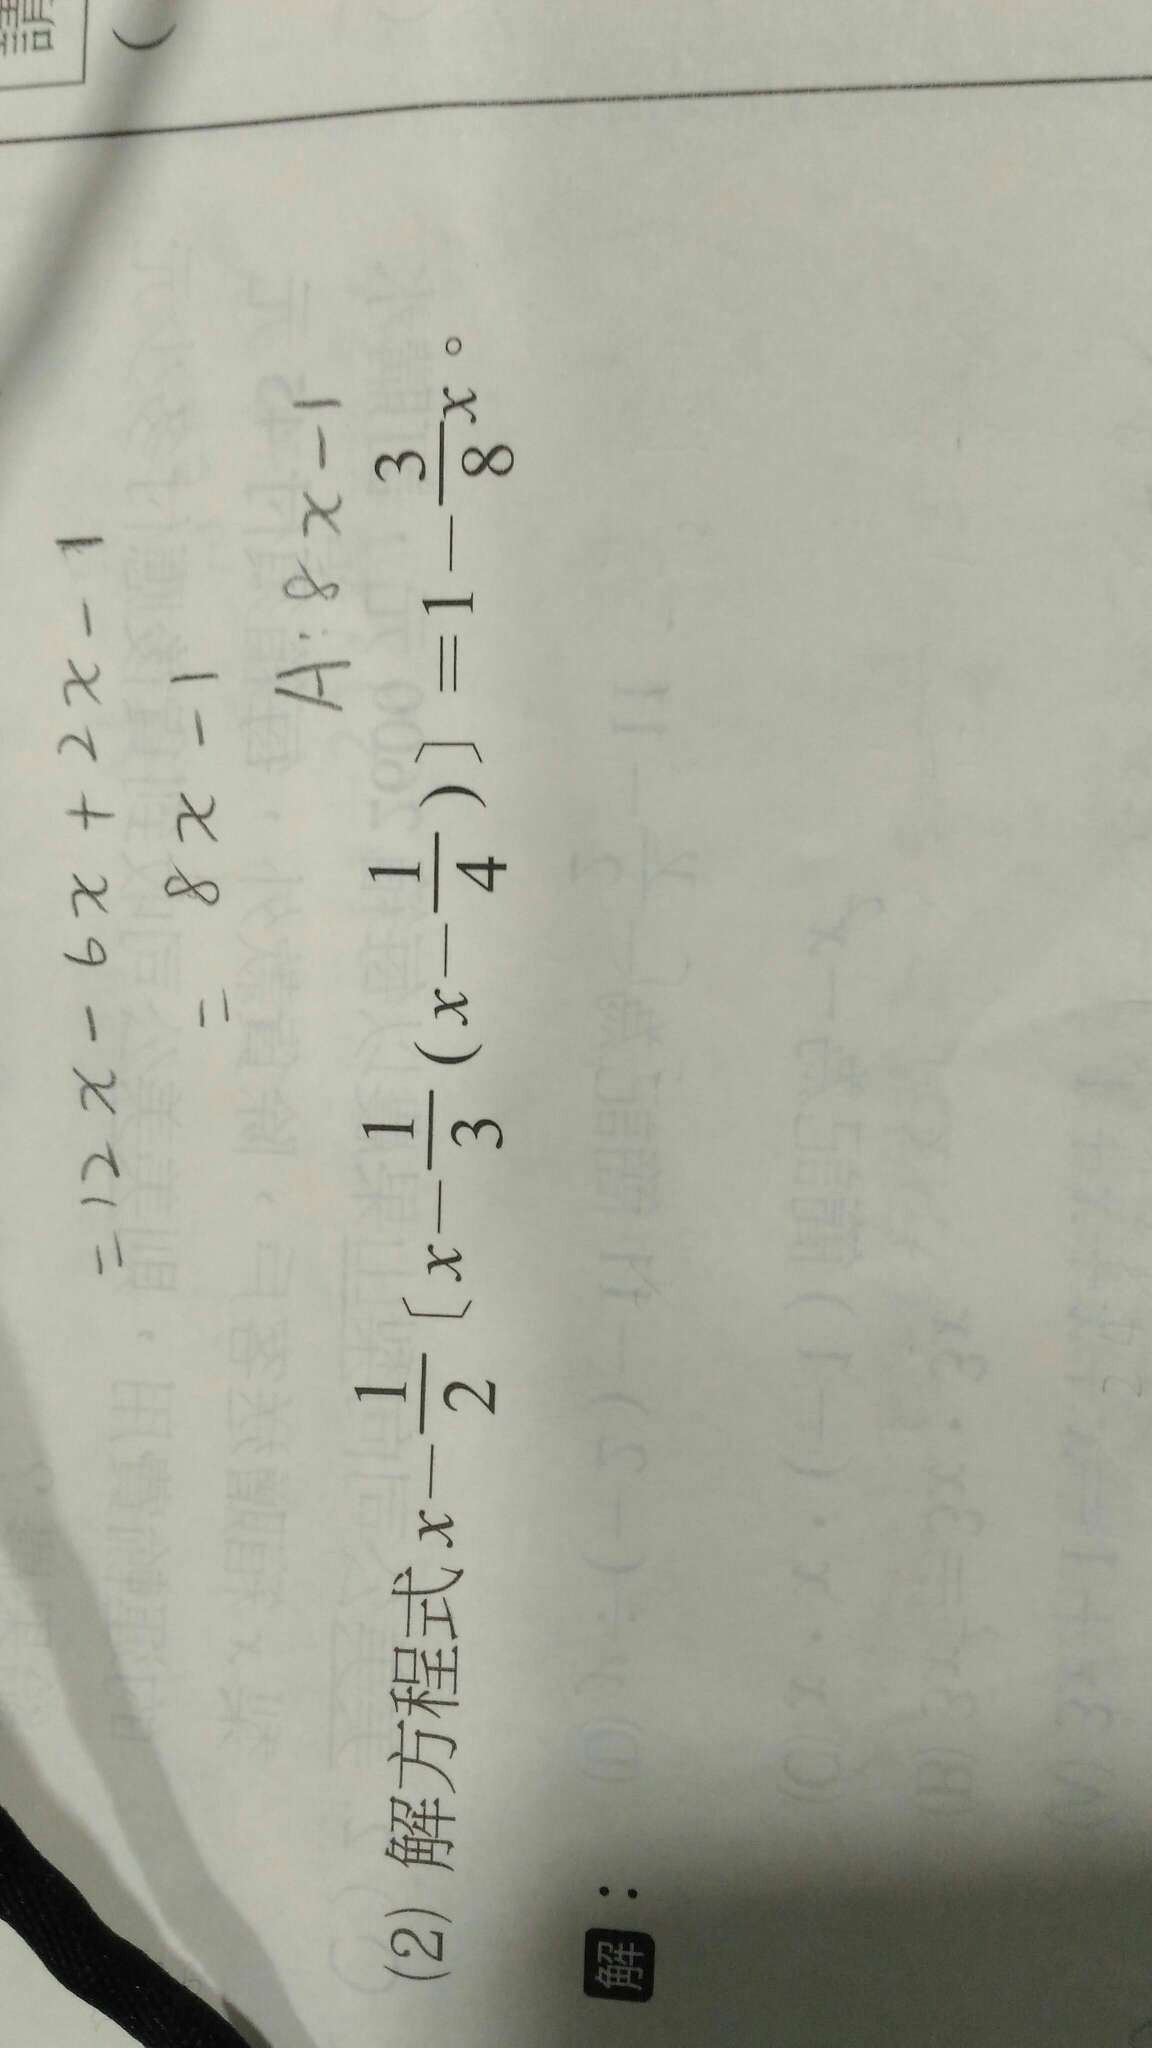 (
=12x-6x+2x-1
= 8x-1
A:8x-1
(2) 解方程式x-\frac{1}{2}〔x-\frac{1}{3}(x-\frac{1}{4})〕=1-\frac{3}{8}x。
解：